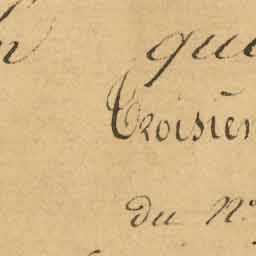 qui
Troisièm
du N°